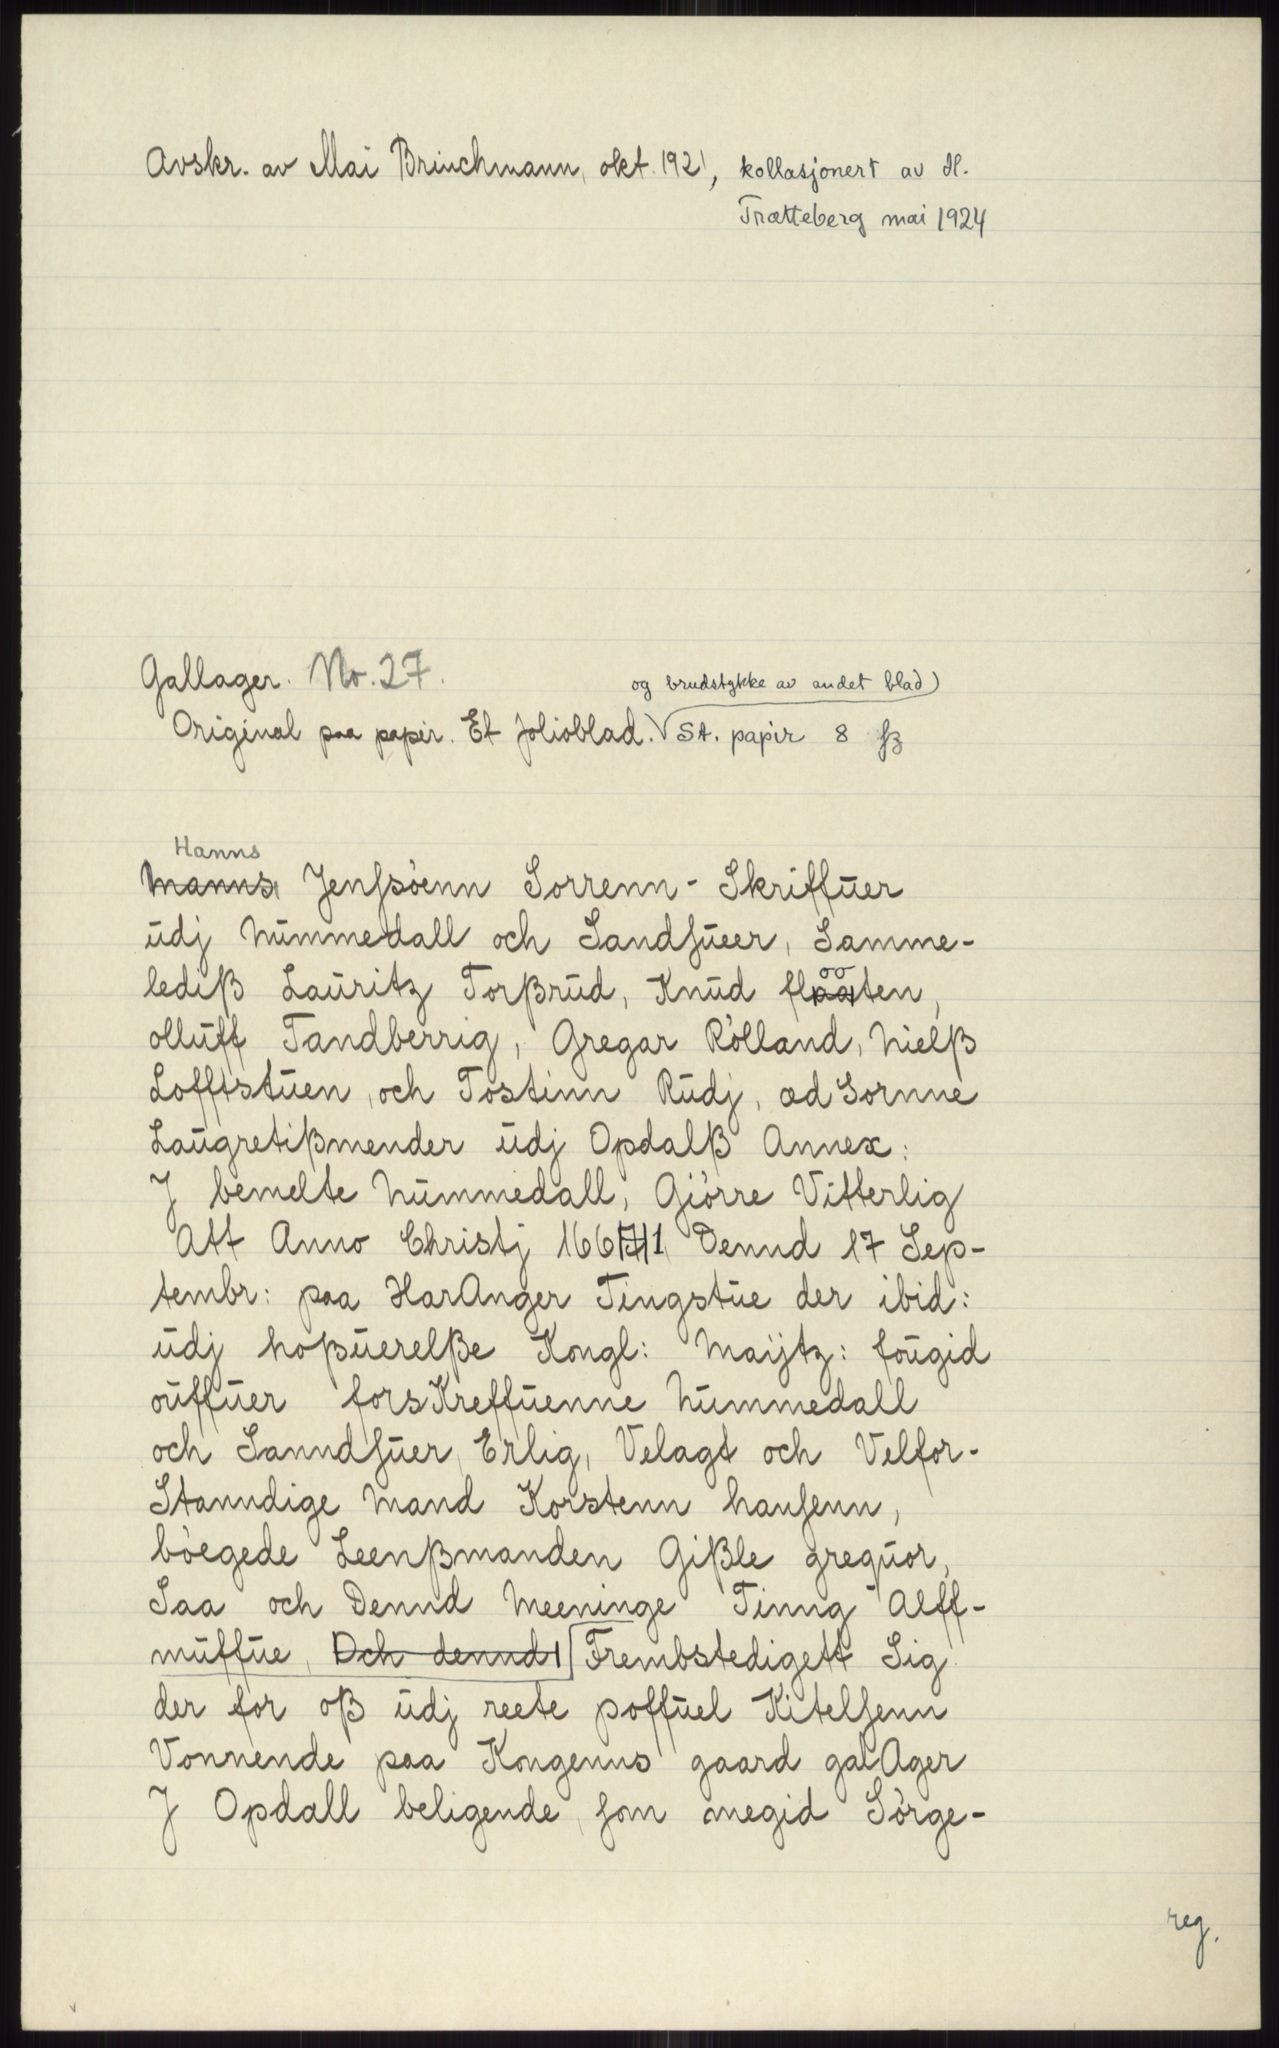 Avskr. av Mai Brinchmann, okt. 1921, kollasjonert av H.
Trætteberg mai 1924
Gallager. No. 27.
og brudstykke av andet blad)
Original paa papir. Et folioblad. St. papir 8
Hanns
Manns Jenssöenn Sorrenn-Skriffuer
udj Nummedall och Sandsueer, Samme-
lediß Lauritz Torßrud, Knud flooten,
olluff Tandberrig, Gregar Rölland, Nielß
Lofftstuen, och Tostinn Rudj, æd Sornne
Laugretißmender udj Opdalß Annex:
J bemelte Nummedall, Giörre Vitterlig
Att Anno Christj 1661 Dennd 17 Sep-
tembr: paa HarAnger Tingstue der ibid:
udj hoßuerelße Kongl: Maÿtz: fougid
ouffuer forsKreffuenne Nummedall
och Sanndsuer, Erlig, Velagt och Velfor-
Stanndige Mand Korstenn hansenn,
böegede Leenßmanden Gißle grequor,
Saa och Dennd Meeninge Tinng Alff-
muffue, Och dennd Frembstedigett Sig
der for oß udj reete poffuel Kitelsenn
Vonnende paa Kongenns gaard galAger
J Opdall beligende, som megid Sörge-
reg.